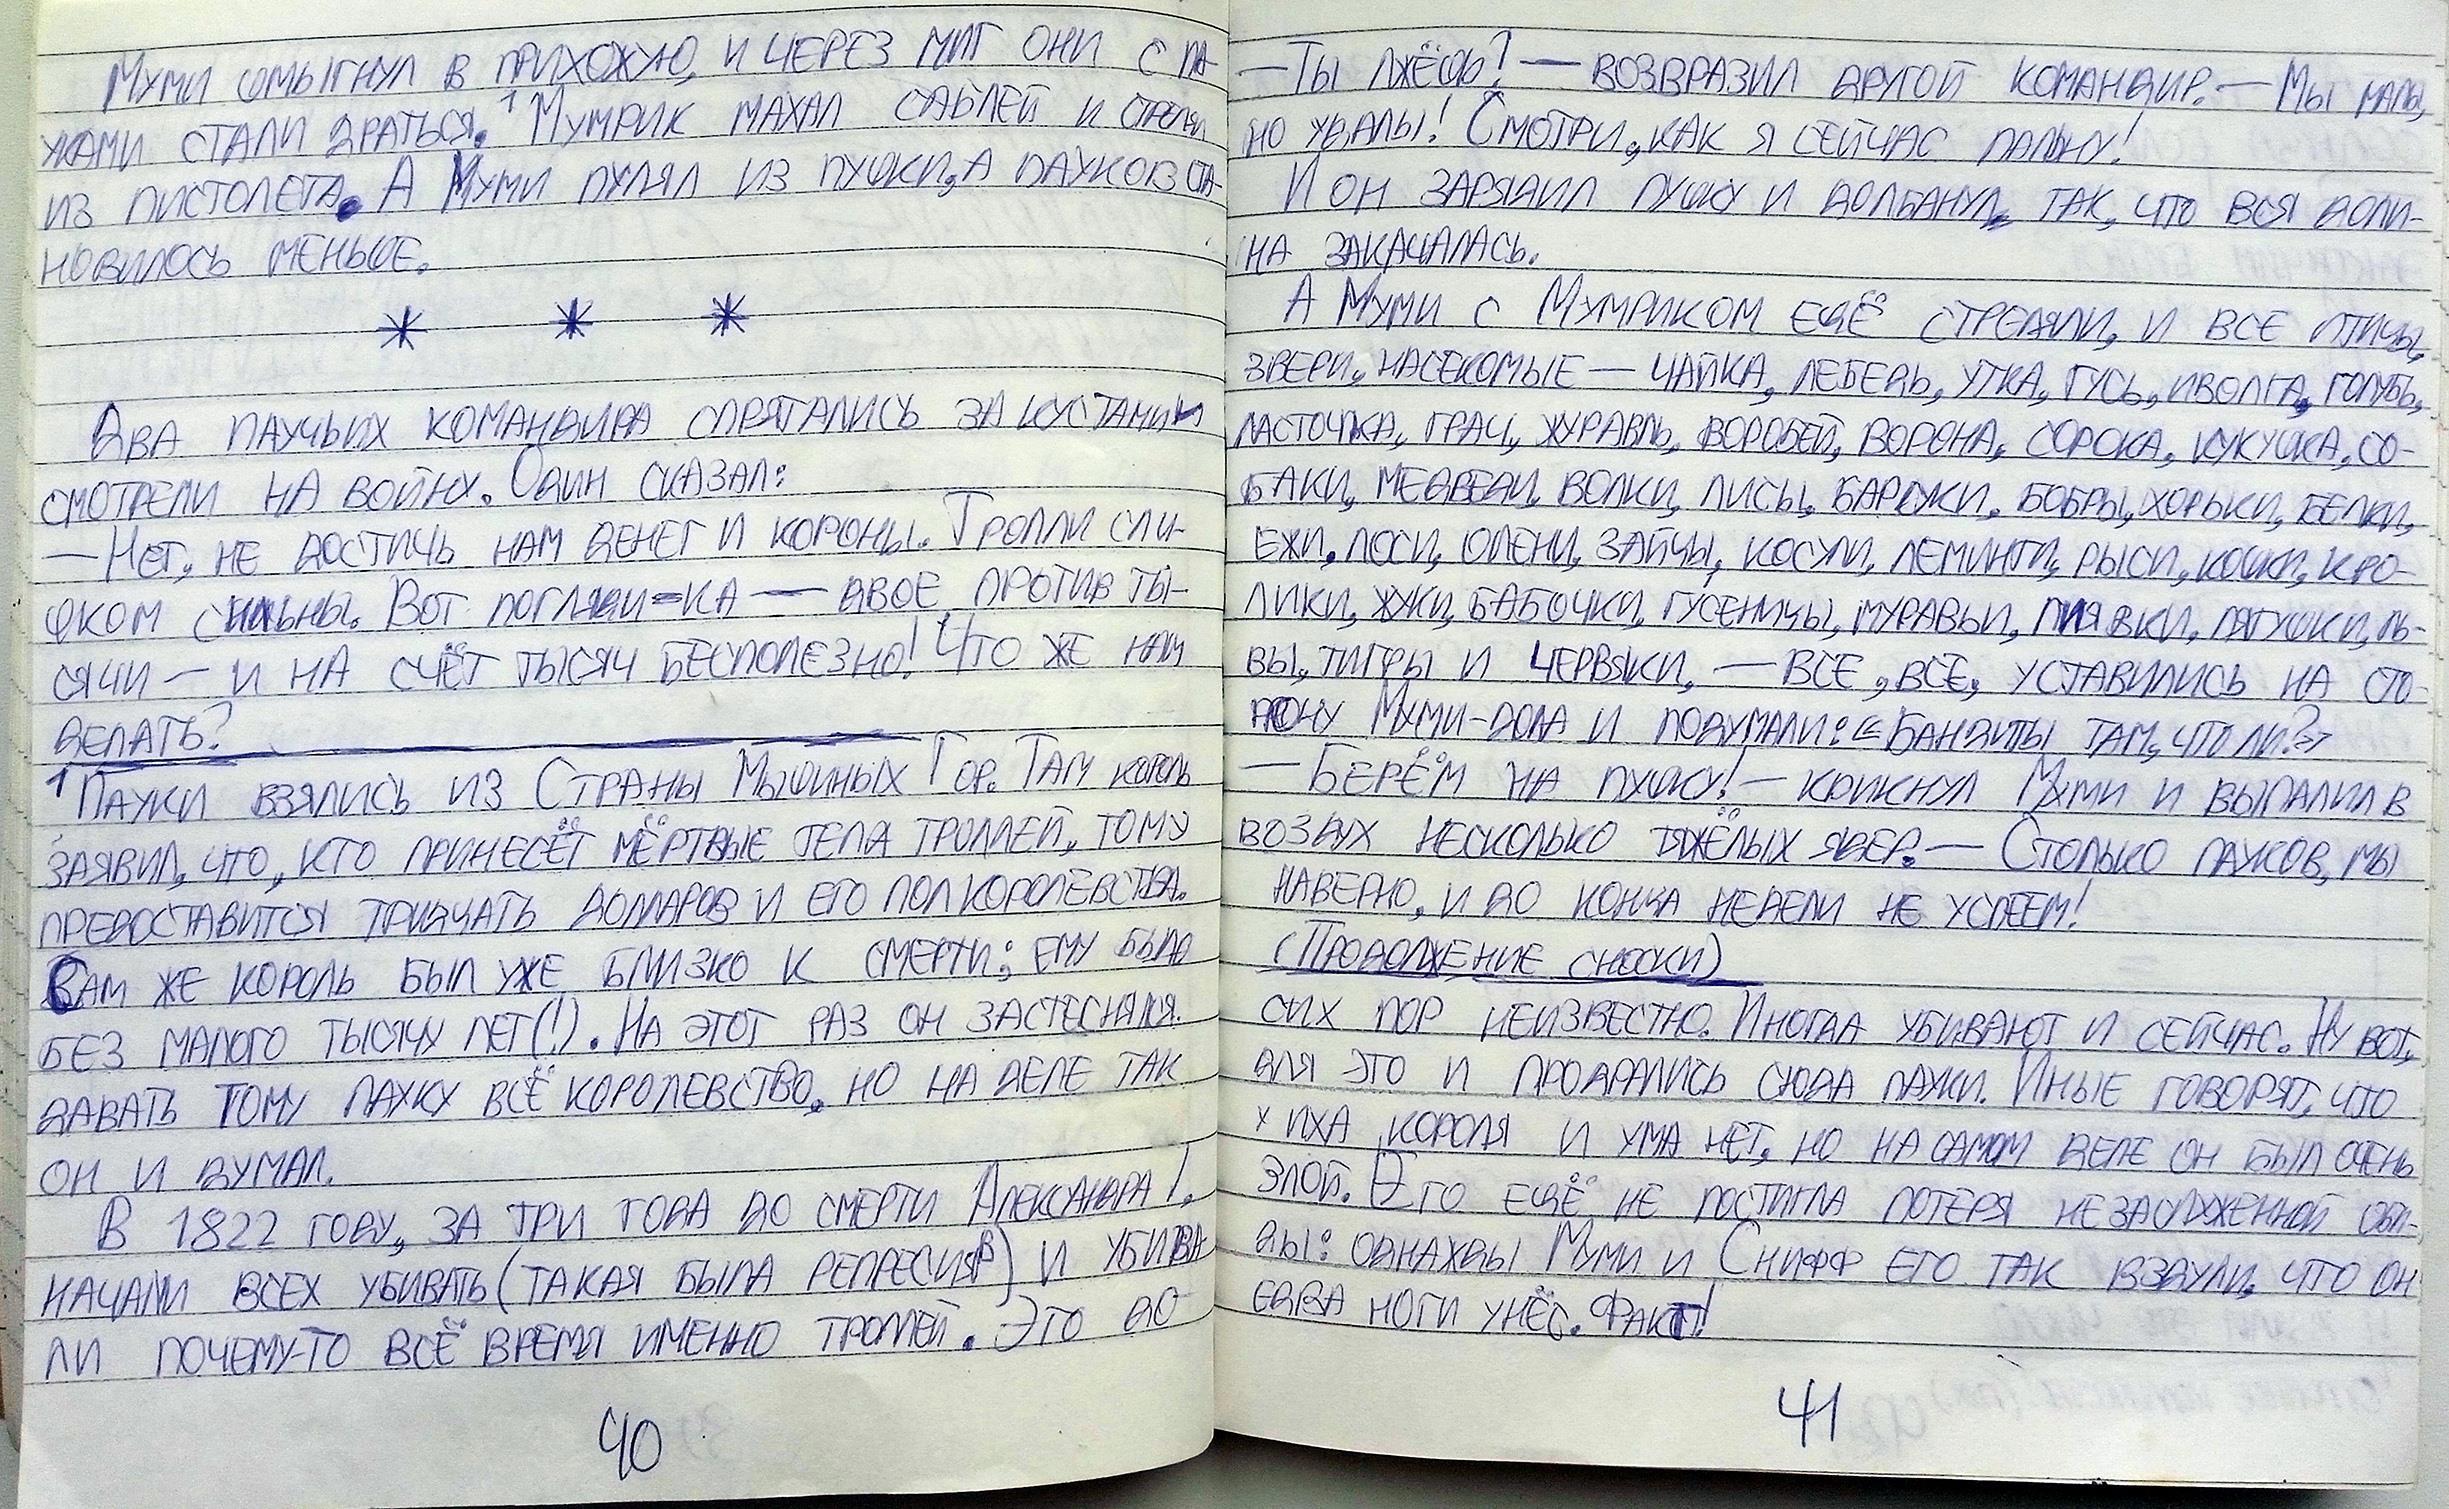 Муми шмыгнул в прихожую, и через миг они с па-
уками стали драться.¹ Мумрик махал саблей и стрелял
из пистолета. А Муми пулял из пушки, а пауков ста-
новилось меньше.
* * *
Два паучьих командира спрятались за кустами и
смотрели на войну. Один сказал:
— Нет, не достичь нам денег и короны. Тролли сли-
шком сильны. Вот погляди-ка — двое против ты-
сячи — и на счёт тысяч бесполезно! Что же нам
делать?
¹ Пауки взялись из Страны Мышиных Гор. Там король
заявил, что, кто принесёт мёртвые тела троллей, тому
предоставится тридцать долларов и его полкоролевства.
Сам же король был уже близко к смерти; ему было
без малого тысячу лет(!). На этот раз он застеснялся
давать тому пауку всё королевство, но на деле так
он и думал.
В 1822 году, за три года до смерти Александра I,
начали всех убивать (такая была репрессия) и убива-
ли почему-то всё время именно троллей. Это до
40
— Ты лжёшь! — возвразил другой командир. — Мы малы,
но удалы! Смотри, как я сейчас пальну!
И он зарядил пушку и долбанул, так, что вся доли-
на закачалась.
А Муми с Мумриком ещё стреляли, и все птицы,
звери, насекомые — чайка, лебедь, утка, гусь, иволга, голубь,
ласточка, грач, журавль, воробей, ворона, сорока, кукушка, со-
баки, медведи, волки, лисы, барсуки, бобры, хорьки, белки,
ежи, лоси, олени, зайцы, косули, лемминги, рыси, кошки, кро-
лики, жуки, бабочки, гусеницы, муравьи, пиявки, лягушки, ль-
вы, тигры и червяки, — все, все, уставились на сто-
рону Муми-дола и подумали: «Бандиты там, что ли?»
— Берём на пушку! — крикнул Муми и выпалил в
воздух несколько тяжёлых ядер. — Столько пауков, мы
наверно, и до конца недели не успеем!
(Продолжение сноски)
сих пор неизвестно. Иногда убивают и сейчас. Ну вот,
для это и продрались сюда пауки. Иные говорят, что
у иха короля и ума нет, но на самом деле он был очень
злой. Его ещё не постигла потеря незаслуженной оби-
ды: однажды Муми и Снифф его так вздули, что он
едва ноги унёс. Факт!
41